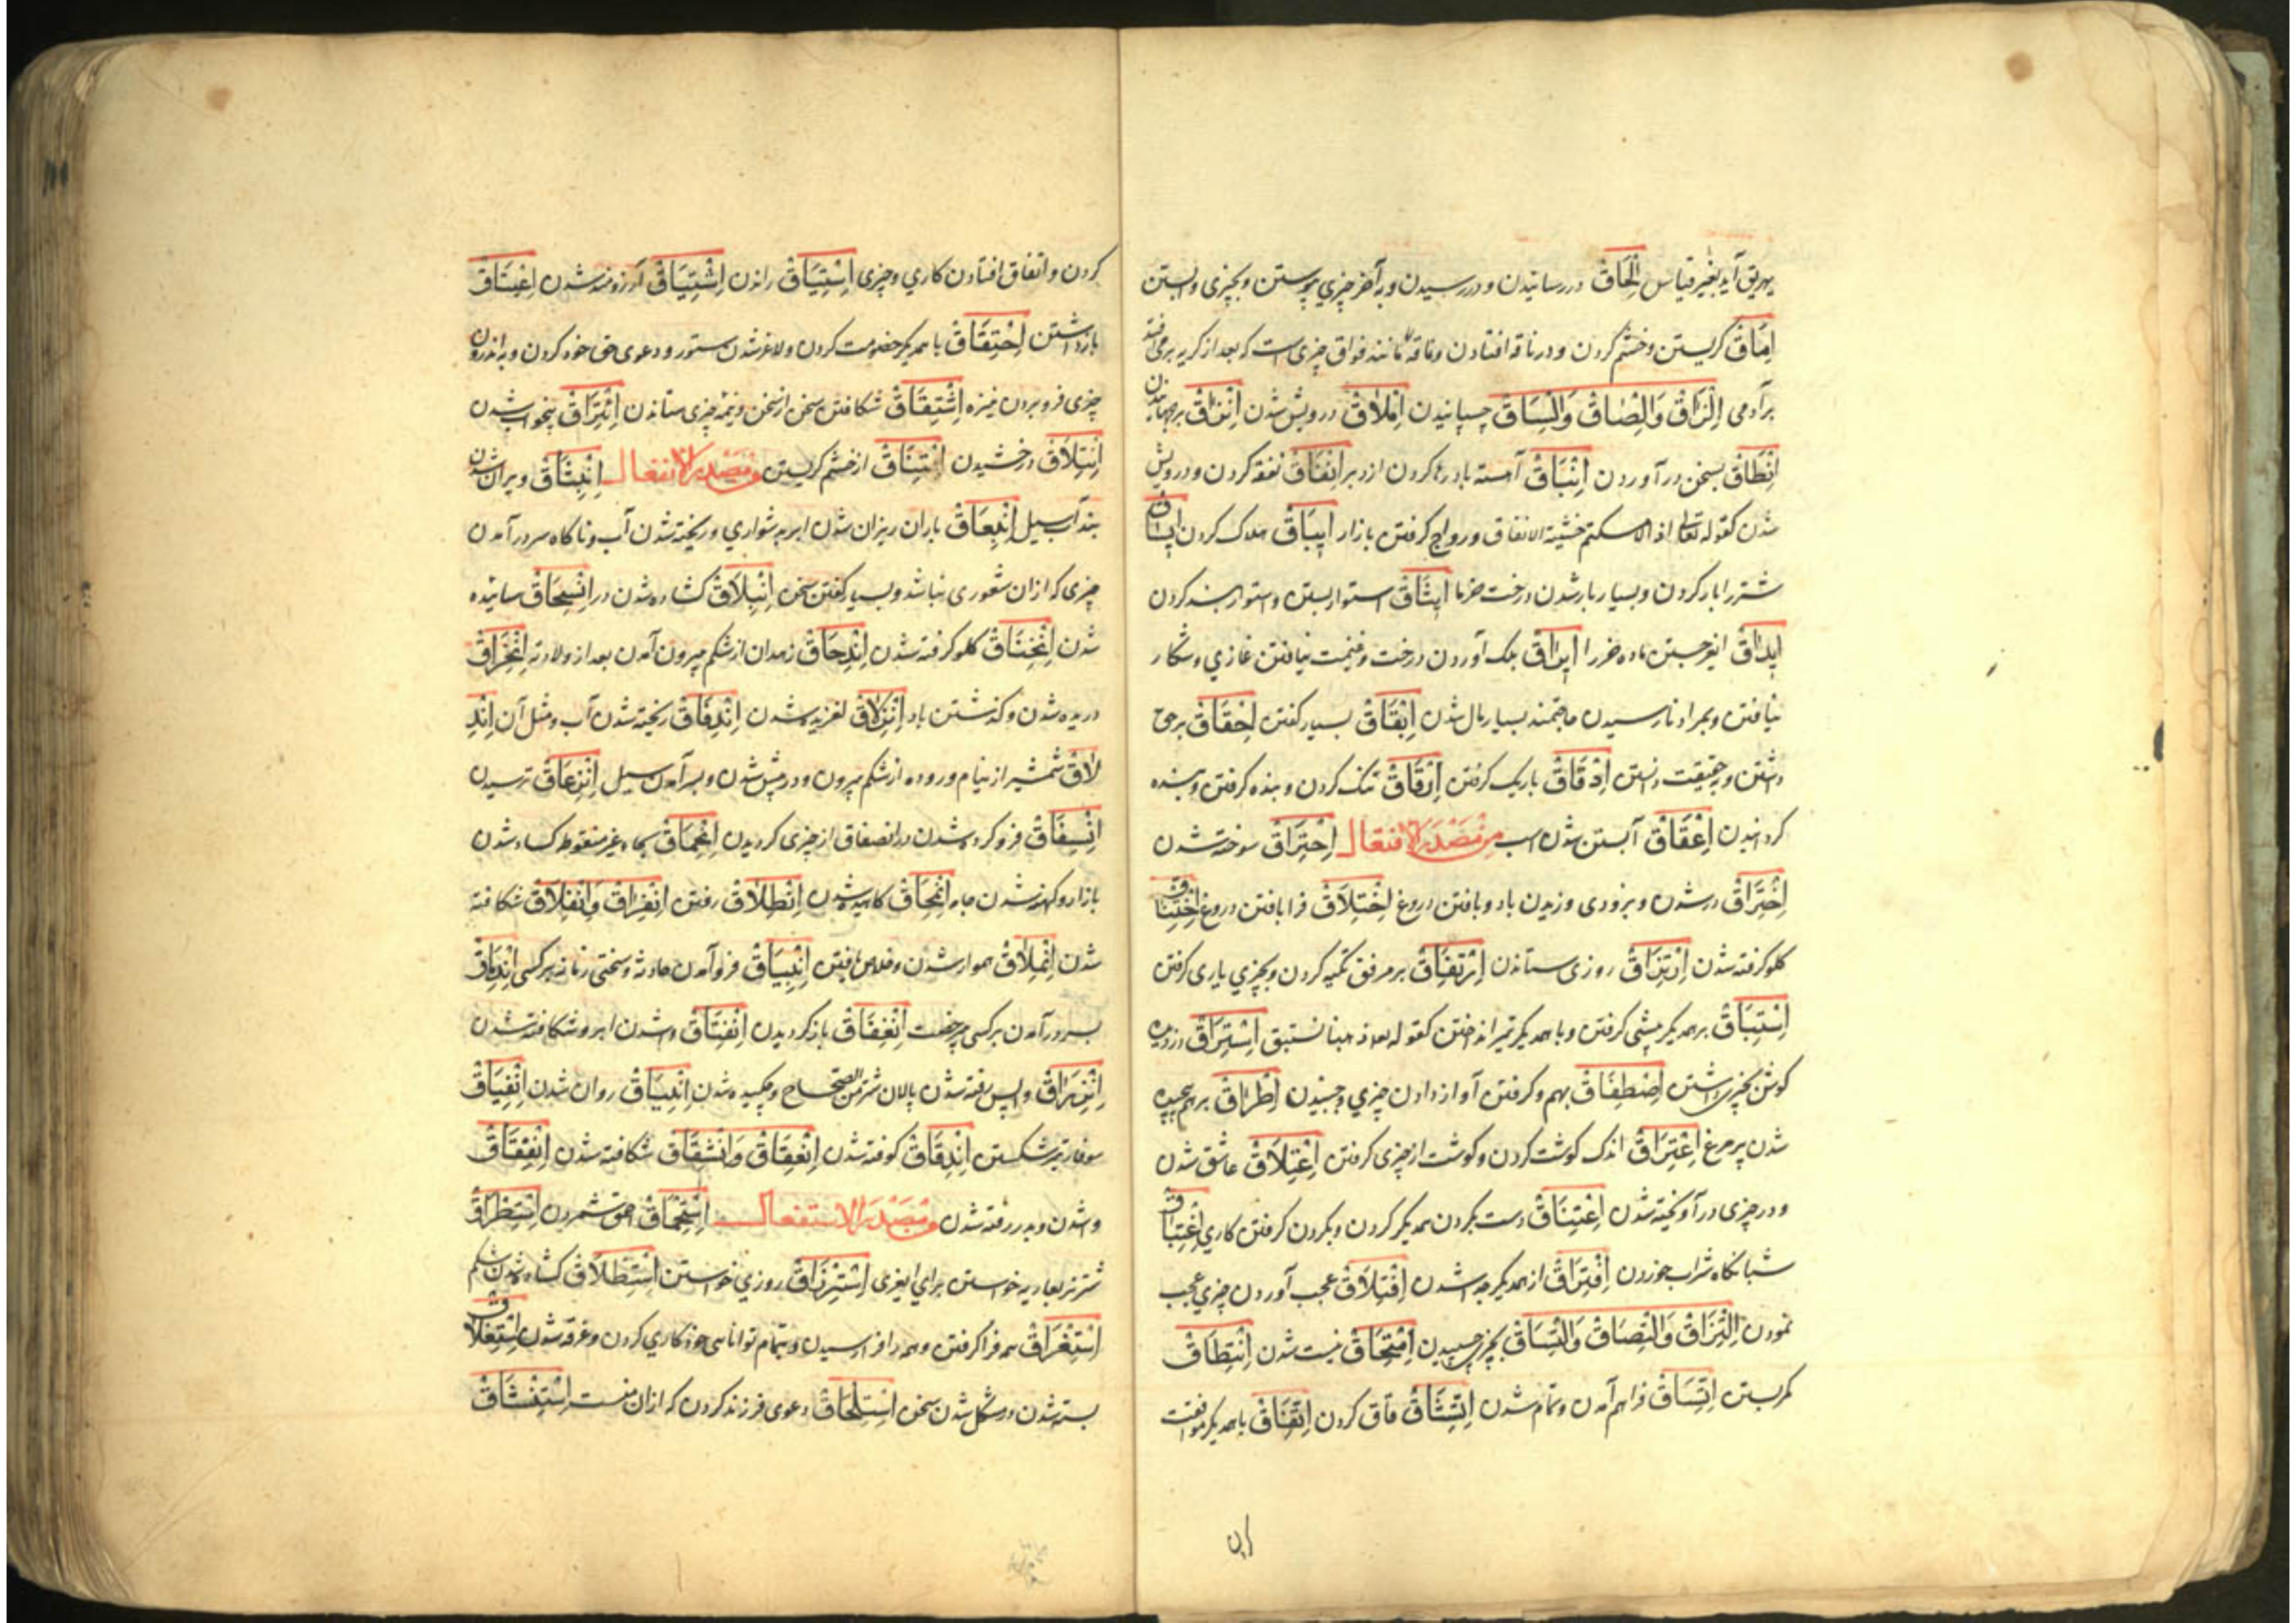 یهریق آید بغیر قیاس اِلْحَاقْ در رسانیدن و در رسیدن و به آخر چیزی پیوستن و بچیزی وابستن
اِمَاقْ کریستن و خشم کردن و در ناقه افتادن وماقه مانند فواق چیزی است که بعد از کریه برمی افتد
بر آدمی اِلْزَاقْ وَالْصَاقْ وَالْسَاقْ چسپانیدن اِمْلَاقْ درویش شدن اِنْزَاقْ برجهانیدن
اِنْطَاقْ بسخن در آوردن اِنْبَاقْ آهسته باد رها کردن از دبر اِنْفَاقْ نفقه کردن و درویش
شدن کقوله تعالی اذا لامسکتم خشیة الانفاق و رواج کرفتن بازار اِیبَاقْ هلاک کردن
شتر را بار کردن و بسیار بار شدن درخت خرما اِیثَاقْ استوار بستن و استوار بند کردن
اِیدَاقْ ماده خر را اِیرَاقْ برک آوردن درخت و غنیمت نیافتن غازی و شکار
نیافتن و بمراد نارسیدن حاجتمند بسیار مال شدن اِبْقَاقْ بسیار کفتن اِحْقَاقْ بر حق
داشتن و بحقیقت دانستن اِدْقَاقْ باریک کرفتن اِرْقَاقْ تنک کردن و بنده کرفتن و بنده
کردانیدن اِعْقَاقْ آبستن شدن اسب من مَصْدَرِ الافتعال اِحْتِرَاقْ سوخته شدن
اِخْتِرَاقْ در شدن و بزودی وزیدن باد و بافتن دروغ اِخْتِلَاقْ فرا بافتن دروغ اِخْتِنَاقْ
کلو کرفته شدن اِرْتِزَاقْ روزی ستاندن اِرْتِفَاقْ بر مرفق تکیه کردن و بچیزی یاری کرفتن
اِسْتِبَاقْ بر همدیکر پیشی کرفتن و با همدیکر تیر انداختن کقوله تعالی ذهبنا نستبق اِسْتِرَاقْ دزدیده
کوش بچیزی داشتن اِصْطِفَاقْ بهم و کرفتن آواز دادن چیزی و جنبیدن اِطِّرَاقْ بر هم پیچیده
شدن پر مرغ اِعْتِرَاقْ اندک کوشت کردن و کوشت از چیزی کرفتن اِعْتِلَاقْ عاشق شدن
و در چیزی در آویخته شدن اِعْتِنَاقْ دست بکردن همدیکر کردن و بکردن کرفتن کاری اِغْتِبَاقْ
شبانکاه شراب خوردن اِفْتِرَاقْ از همدیکر جدا شدن اِفْتِلَاقْ عجب آوردن چیزی عجب
نمودن اِلْتِزَاقْ وَالْتِصَاقْ وَالْتِسَاقْ بچیزی چسپیدن اِمْتِحَاقْ نیست شدن اِنْتِطَاقْ
کمر بستن اِتِّسَاقْ فراهم آمدن و تمام شدن اِتِّفَاقْ با همدیکر موافقت
کردن و اتفاق افتادن کاری و چیزی اِسْتِیَاقْ راندن اِشْتِیَاقْ آرزومند شدن اِعْتِیَاقْ
بازداشتن اِحْتِقَاقْ با همدیکر خصومت کردن و لاغر شدن ستور و دعوی حق خود کردن و باندرون
چیزی فرو بردن نیزه اِشْتِقَاقْ شکافتن سخن از سخن و نیمه چیزی ستاندن اِئْتِرَاقْ بیخواب شدن
اِئْتِلَاقْ درخشیدن از خشم کریستن من مَصْدَرِ الانفعال اِنْبِثَاقْ ویران شدن
بند آب سیل اِنْبِعَاقْ باران ریزان شدن ابر بدشواری و ریخته شدن آب و ناکاه سر در آمدن
چیزی که از ان شعوری نباشد و بسیار کفتن سخن اِنْبِلَاقْ کشاده شدن در اِنْسِحَاقْ سائیده
شدن اِنْخِنَاقْ کلو کرفته شدن اِنْدِحَاقْ زهدان از شکم بیرون آمدن بعد از ولادت اِنْخِرَاقْ
دریده شدن و کذشتن باد اِنْزِلَاقْ لغزیده شدن اِنْدِفَاقْ ریخته شدن آب و مثل آن اِنْدِ
لَاقْ شمشیر از نیام و روده از شکم بیرون و در پیش شدن و بر آمدن سیل اِنْزِعَاقْ ترسیدن
اِنْسِفَاقْ فرو کرده شدن در انصفاق از چیزی کردیدن اِنْحِمَاقْ بحاء غیر منقوط کساد شدن
بازار و کهنه شدن جامه اِنْمِحَاقْ کاهیده شدن اِنْطِلَاقْ رفتن اِنْفِرَاقْ وَانْفِلَاقْ شکافته
شدن اِنْمِلَاقْ هموار شدن و خلاص یافتن اِنْبِیَاقْ فرو آمدن حادثه و سختی زمانه بر کسی
بسر در آمدن بر کسی بی رخصت اِنْغِفَاقْ باز کردیدن اِنْفِتَاقْ وا شدن ابر و شکافته شدن
واپس رفته شدن پالان شتر من الصحاح و چکیده شدن روان شدن اِنْفِیَاقْ
سوفار تیر شکستن اِنْدِقَاقْ کوفته شدن اِنْعِقَاقْ وَانْشِقَاقْ شکافته شدن اِنْفِقَاقْ
وا شدن و بدر رفته شدن من مَصْدَرِ الاستفعال اِسْتِحْمَاقْ احمق شمردن اِسْتِطْرَاقْ
شتر نر بعاریه خواستن برای اِسْتِرْزَاقْ روزی خواستن اِسْتِطْلَاقْ کشاده شدن شکم
اِسْتِغْرَاقْ همه فرا کرفتن و همه را فرا رسیدن و بتمام توانائی خود کاری کردن و غرقه شدن اِسْتِغْلَاقْ
بسته شدن و مشکل شدن سخن اِسْتِلْحَاقْ دعوی فرزند کردن که از ان منست اِسْتِنْشَاقْ